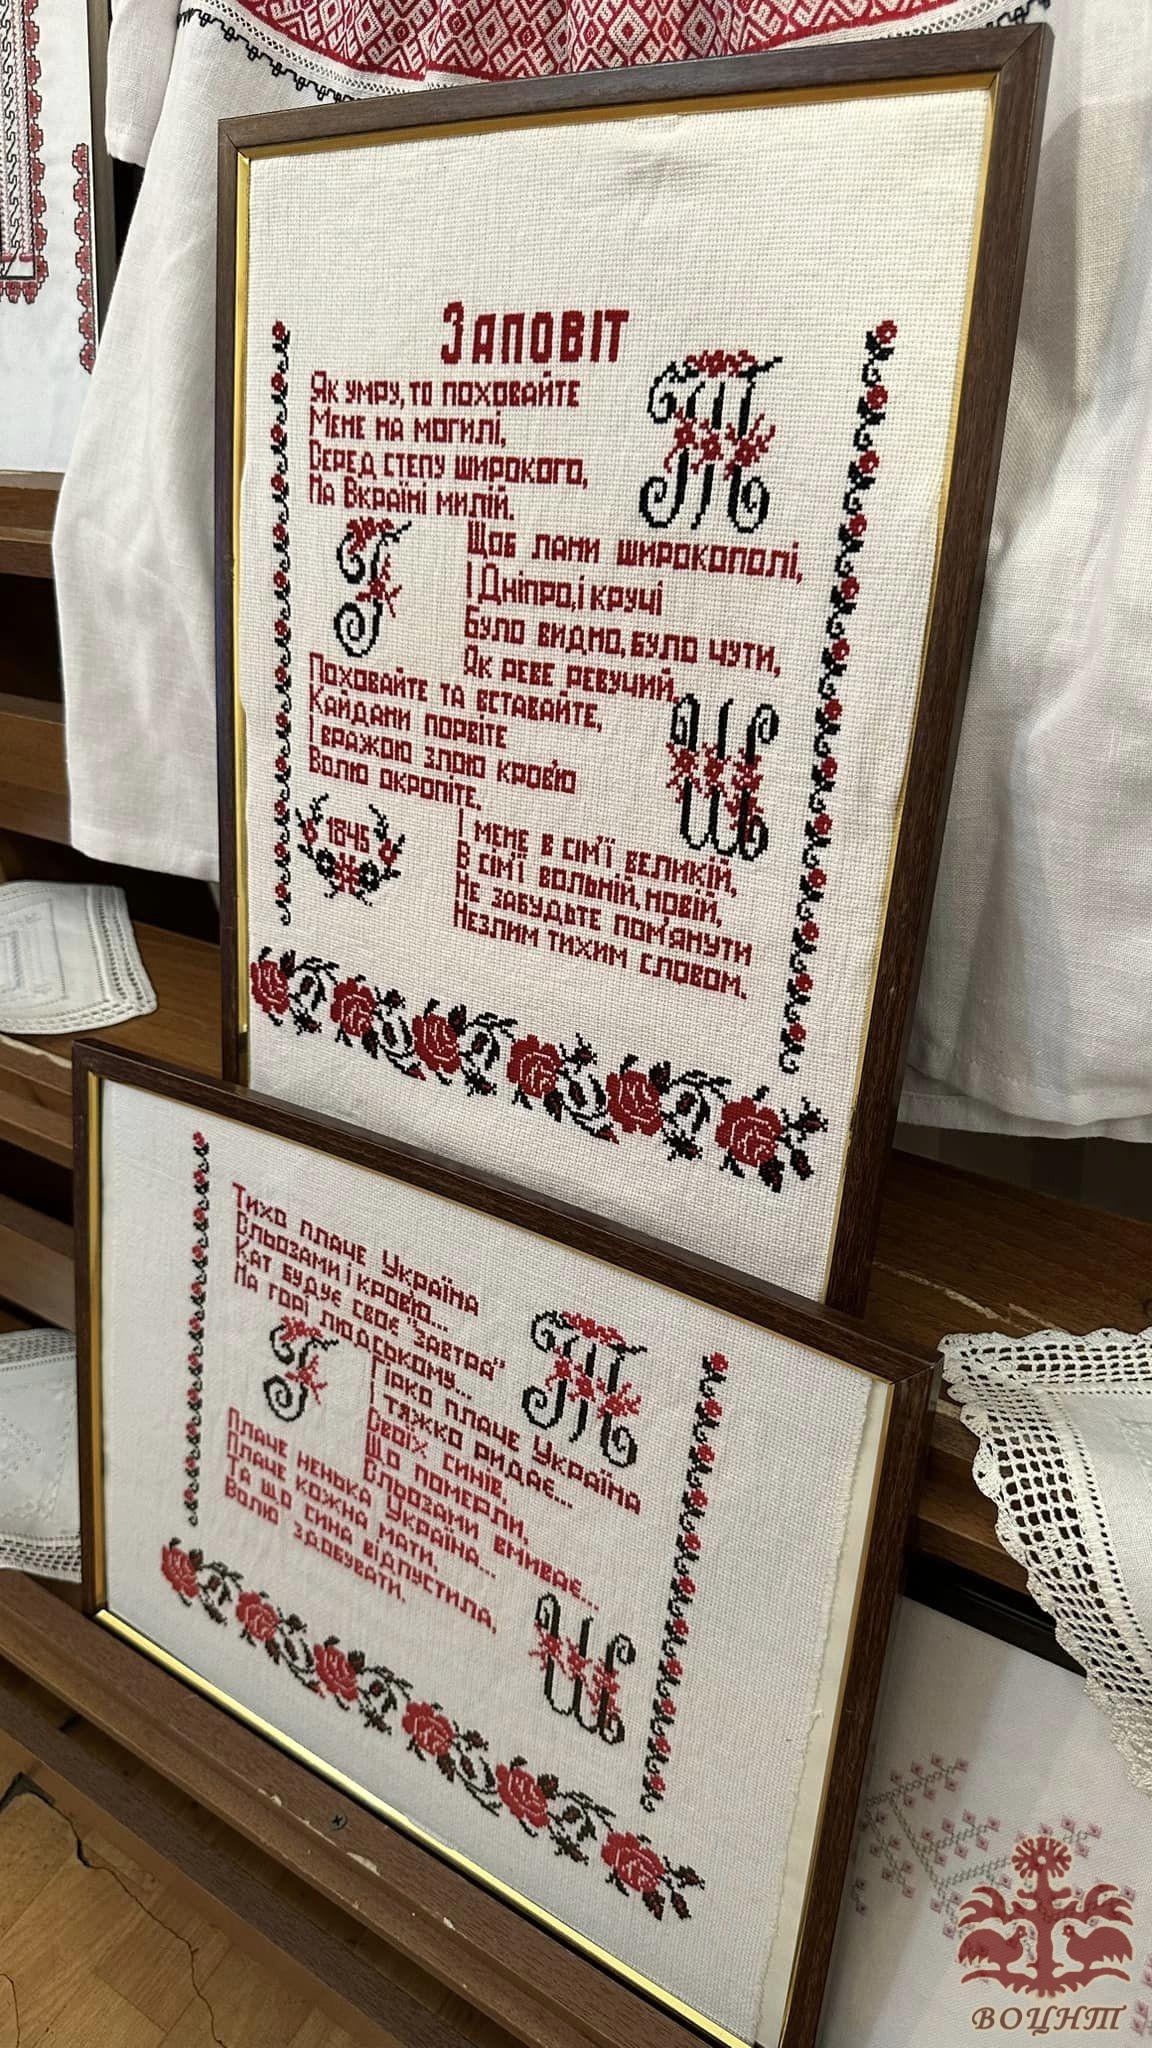 Заповіт
Як умру, то поховайте
Мене на могилі,
Серед степу широкого,
На Вкраїні милій.
Т
Щоб лани широкополі,
І Дніпро, і кручі
Було видно, було чути,
Як реве ревучий.
Г
Поховайте та вставайте,
Кайдани порвіте
І вражою злою кров'ю
Волю окропіте.
Ш
1845
І мене в сім'ї великій,
В сім'ї вольній, новій,
Не забудьте пом'янути
Незлим тихим словом.
Тихо плаче Україна
Сльозами і кров'ю...
Кат будує своє "завтра"
На горі людському...
Т
Г
Гірко плаче Україна
І тяжко ридає...
Своїх синів,
Що померли,
Сльозами вмиває...
Плаче ненька Україна...
Плаче кожна мати,
Та що сина відпустила,
Волю здобувати.
Ш
ВОЦНТ